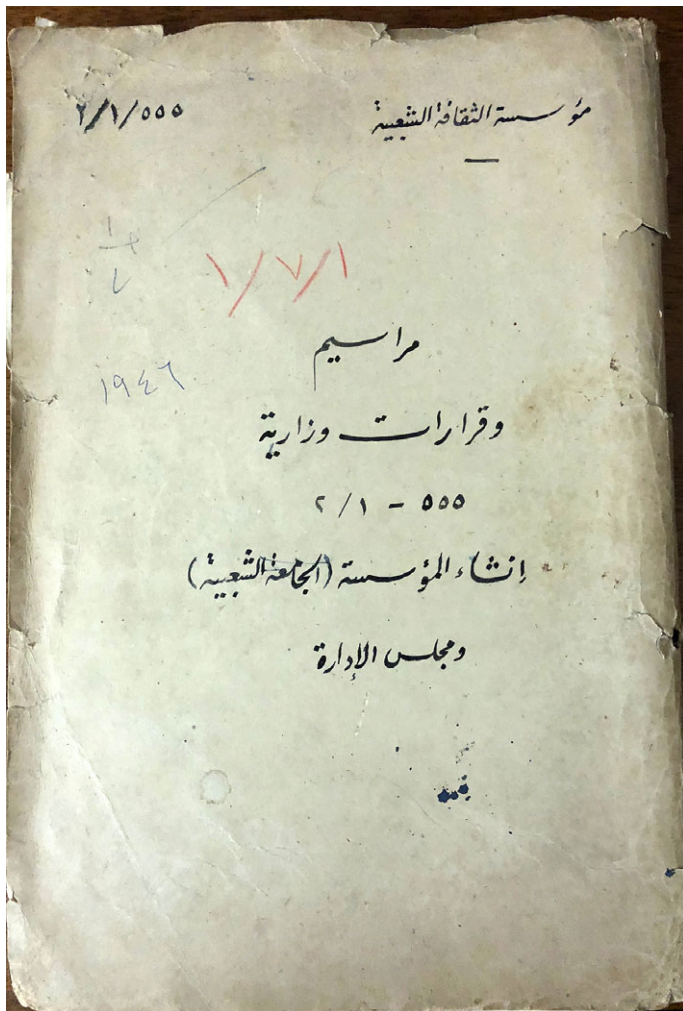 مؤسسة الثقافة الشعبية
٢/١/٥٥٥
١
٧
١/٧/١
مراسيم
١٩٤٦
وقرارات وزارية
٥٥٥ - ٢/١
إنشاء المؤسسة (الجامعة الشعبية)
ومجلس الإدارة